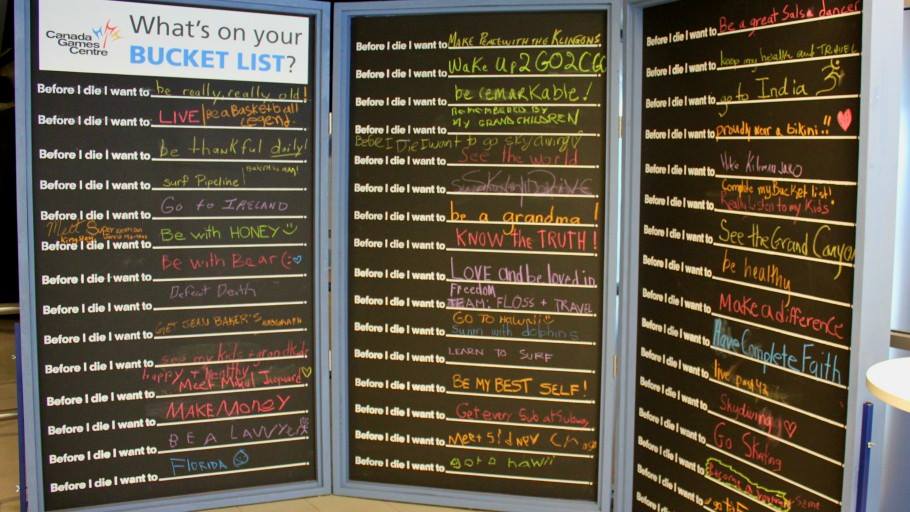 Canada Games Centre
What's on your
BUCKET LIST?
Before I die I want to be really, really old!
Before I die I want to LIVE Be a Basketball legend.
Before I die I want to be thankful daily!
Before I die I want to surf Pipeline!
Before I die I want to Go to IRELAND
Before I die I want to Be with HONEY
Before I die I want to Be with Bear
Before I die I want to Defeat Death
Before I die I want to GET JEAN BAKER'S
Before I die I want to see my kids + grandkids
happy + healthy
Before I die I want to Meet
Before I die I want to MAKE MONEY
Before I die I want to BE A LAWYER
Before I die I want to FLORIDA
Before I die I want to MAKE PEACE WITH THE KLINGONS
Before I die I want to Wake Up 2 GO 2 CGC
Before I die I want to be remarkable!
Before I die I want to REMEMBERED BY
MY GRANDCHILDREN
Before I Die I want to go skydiving
Before I die I want to See the world
Before I die I want to
Before I die I want to be a grandma!
Before I die I want to KNOW the TRUTH!
Before I die I want to LOVE and be loved in
Freedom
Before I die I want to TEAM: FLOSS + TRAVEL
GO TO HAWAII
Before I die I want to Swim with dolphins
Before I die I want to LEARN TO SURF
Before I die I want to BE MY BEST SELF!
Before I die I want to Get every Sub at Subway
Before I die I want to Meet Sidney
Before I die I want to got o hawii
Before I die I want to Be a great Salsa dancer
Before I die I want to keep my health and TRAVEL
Before I die I want to go to India
Before I die I want to proudly wear a bikini!!
Before I die I want to Hike
Complete my Bucket list!
Before I die I want to Really listen to my Kids
Before I die I want to See the Grand Canyon
Before I die I want to be healthy
Before I die I want to Make a difference
Before I die I want to Have Complete Faith
Before I die I want to live
Before I die I want to Skydiving
Before I die I want to Go Skating
Before I die I want to
Before I die I want to